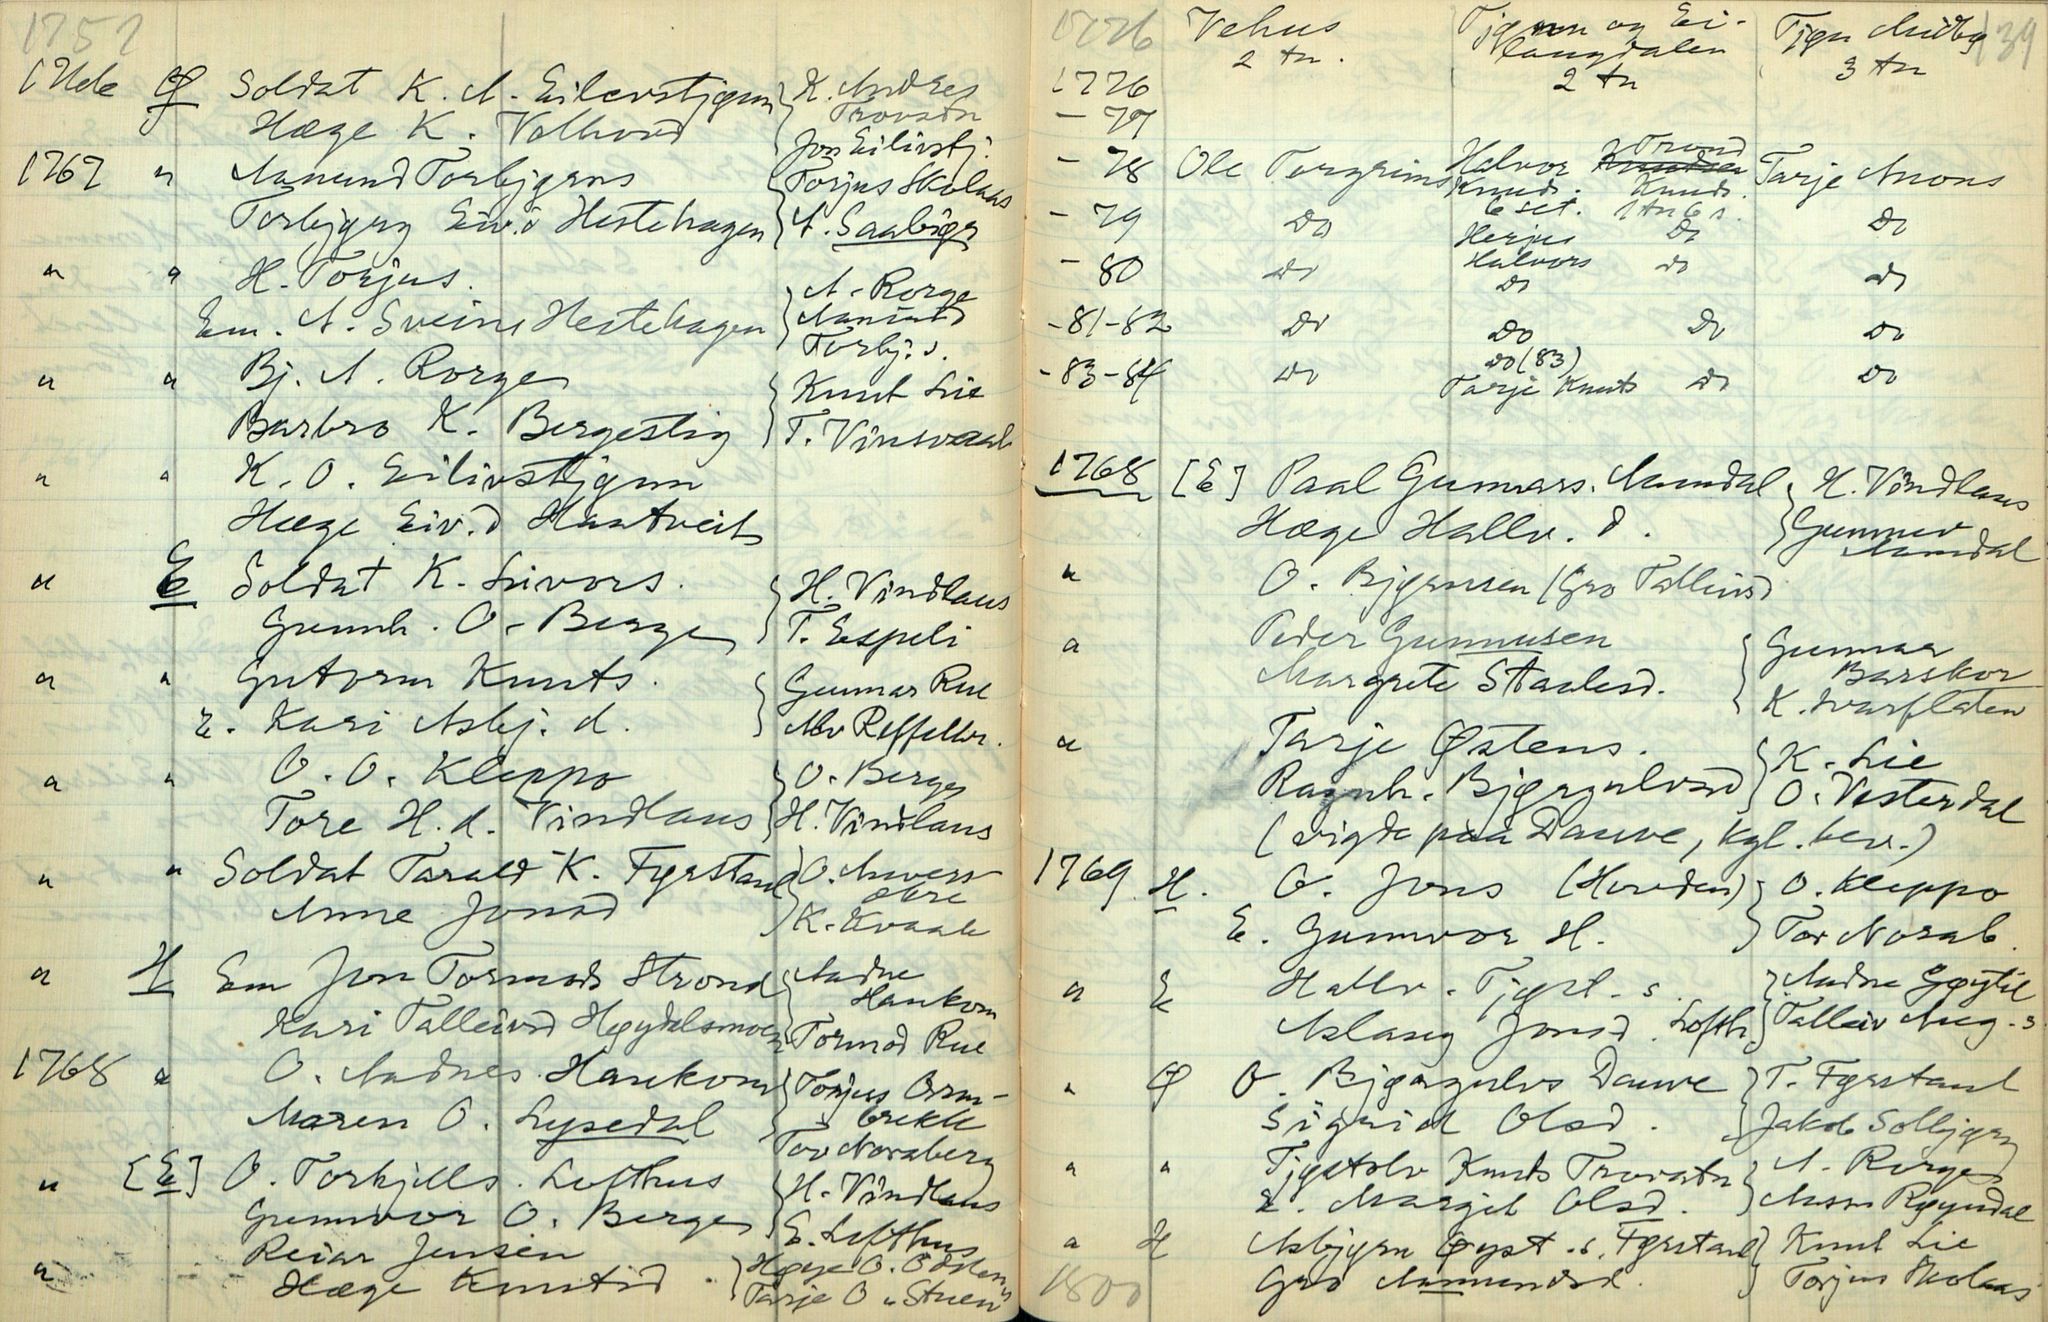 1757
Ø Soldat K. A. Eilevstjønn } K. Andres Trovatn
Hæge K. Valhovd } Jon Eilivstj.
1767 " Aamund Torbjørns } Torjus Skolaas
Torbjørg Eiv.d Hestehagen } A. Saabigr
" " H. Torjus.
Em. A. Sveins Hestehagen } A. Rorge Aamund Torbj. s.
" " Bj. A. Rorge } Knut Lie
Barbro K. Bergestig } T. Vinsvaal
" " K. O. Eilivstjønn
Hæge Eiv.d Haatveit
" E Soldat K. Livors. } H. Vindlaus
Gunnh. O. Berge } T. Espeli
" " Gutorm Knuts. } Gunnar Rue
E. Kari Asbj. d. } Alv Reffellv.
" " O. O. Kleppo } O. Berge
Tore H. d. Vindlaus } H. Vindlaus
" " Soldat Tarald K. Fyrstaul }
Anne Jonsd } K. Kvaale
" H Em Jon Tormods Strond } Aadne Haukom
Kari Talleivsd Høydalsmoen } Tormod Rue
1768 " O. Aadnes. Haukom } Torjus Ormbrekk
Maren O. Lysedal } Tov Noraberg
" [E] O. Torkjells. Lofthus } H. Vindlaus
Gunnvor O. Berge } E. Lofthus
" Reiar Jensen } Høye O. Ødsten
Hæge Knutsd. } Tarje O. Stuen
1776 Vehus 2 tn. Tjønn og Eilangdalen 2 tn Tjøn Midbø 3 tn 139
1776
- 77
- 78 Ole Torgrims Halvor Knuds. 6 set. Trond Knuds. 1 tn 6 s. Tarje Aaons
- 79 Do Herjus Halvors Do Do
- 80 Do Do Do Do
- 81-82 Do Do Do Do
- 83-84 Do Do (83) Tarje Knuts Do Do
1768 [E] Paal Gunnars. Aamdal } H. Vindlaus
Hæge Hallv. d. } Gunnar Aamdal
" O. Bjørnsen / Gro Talleivsd
" Peder Gunnusen } Gunnar Barskor
Margrete Staalesd. } K. Svarflaten
" Tarje Østens. } K. Lie
Ragnh. Bjørgulvsd } O. Vesterdal
(vigde paa Dauve, kgl. bev.)
1769 H. O. Jons (Hovden) } O. Kleppo
E. Gunnvor H. } Tov Norab.
" E Hallv. Tjøst. s. } Aadne Gøytil
Aslaug Jonsd. Lofth. } Talleiv Aug. s.
" Ø O. Bjørgulvs Dauve } T. Fyrstaul
Sigrid Olsd. } Jakob Solbjørg
" " Tjøstolv Knuts Trovatn } A. Rorge
E. Margit Olsd. } Aasm Røyndal
" H Asbjørn Øyst. s. Fyrstaul } Knut Lie
Gro Aamundsd. } Torjus Skolaas
1800